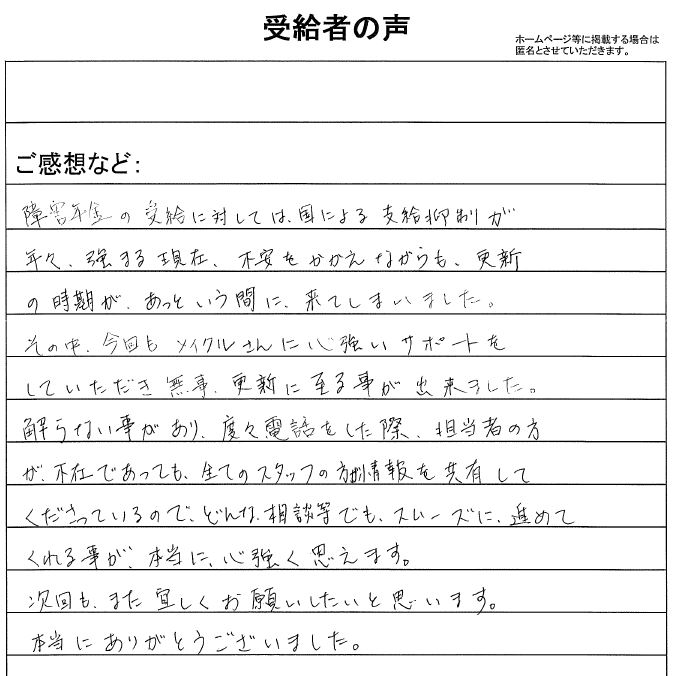 受給者の声
ホームページ等に掲載する場合は
匿名とさせていただきます。
ご感想など：
障害年金の受給に対しては、国による支給抑制が
年々、強まる現在、不安をかかえながらも、更新
の時期が、あっという間に、来てしまいました。
その中、今回もメイクルさんに心強いサポートを
していただき無事、更新に至る事が出来ました。
解らない事があり、度々電話をした際、担当者の方
が、不在であっても、全てのスタッフの方が情報を共有して
くださっているので、どんな、相談等でも、スムーズに、進めて
くれる事が、本当に、心強く思えます。
次回も、また宜しくお願いしたいと思います。
本当にありがとうございました。